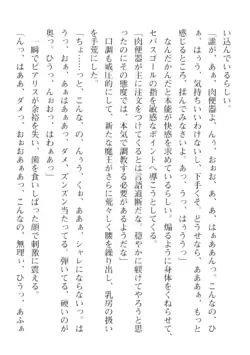 い込んでいるらしい。
「誰が、あぁ、肉便器、よ。お、おぉ、あ、あ、はぁぁんっ。こんなの、ひ
ぁ、はぅぅ、気持ちいいわけないし、下手くそ、どうせなら、あああぁ、もっと
感じるところ、揉んでみなさいよ、
だんだんと本能が快感を求めているらしい。煽るように身体をくねらせて、
セバスゴールの指を敏感なポイントへ導こうとしている。
「肉便器が主に注文をつけてくるとは言語道断だな。穏やかに躾けてやろうと思
ったのにその態度では、本気で調教する必要があるようだな」
口調も威圧的にして、新たな魔王がさらに荒々しく腰を繰り出し、乳房の扱い
を手荒にした。
「ちょ――っと、こんな、の、んくぅっ、ああぁ、シャレにならないっ、は
うっ、おぉ、あぁはぁぁはぁっ、ダメ、ズンズン当たってる。弾いてる、硬いのが
奥っ、ひうぅっ、んああっ」
一瞬でピアリスが余裕を失い、歯を食いしばった顔で刺激に震える。
「んっ、はああ、ダメっ、おぉおぁあぁっ、こんなの、無理ぃ、ひうっ、あふぁ